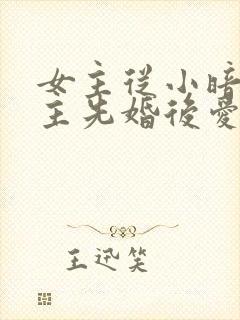 女主從小暗
主先婚後愛
王迅笑